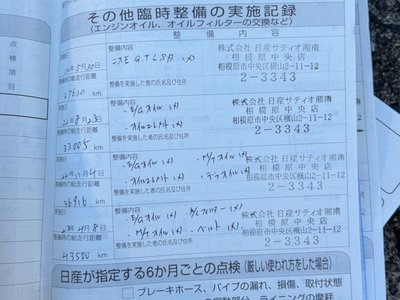 その他臨時整備の実施記録
(エンジンオイル、オイルフィルターの交換など)
整備内容
点検項目
実施日
整備時の総走行距離
27630 km
整備内容
整備を実施した者の氏名及び住所
株式会社 日産サティオ湘南
相模原中央店
相模原市中央区横山2-11-12
2-3343
実施日
22年8月23日
整備時の総走行距離
33005 km
整備内容
・E/Gオイル (メ)
・オイルエレメント (メ)
整備を実施した者の氏名及び住所
株式会社 日産サティオ湘南
相模原中央店
相模原市中央区横山2-11-12
2-3343
実施日
22年11月4日
整備時の総走行距離
km
整備内容
・E/Gオイル (メ) ・M/Tオイル (メ)
・オイルエレメント (メ) ・デフオイル (メ)
整備を実施した者の氏名及び住所
株式会社 日産サティオ湘南
相模原中央店
相模原市中央区横山2-11-12
2-3343
実施日
23年4月8日
整備時の総走行距離
43500 km
整備内容
・E/Gオイル (メ)
・M/Tオイル (メ) ・ベルト (メ)
整備を実施した者の氏名及び住所
株式会社 日産サティオ湘南
相模原中央店
相模原市中央区横山2-11-12
2-3343
日産が指定する6か月ごとの点検(厳しい使われ方をした場合)
ブレーキホース、パイプの漏れ、損傷、取付状態
ライニングの摩耗